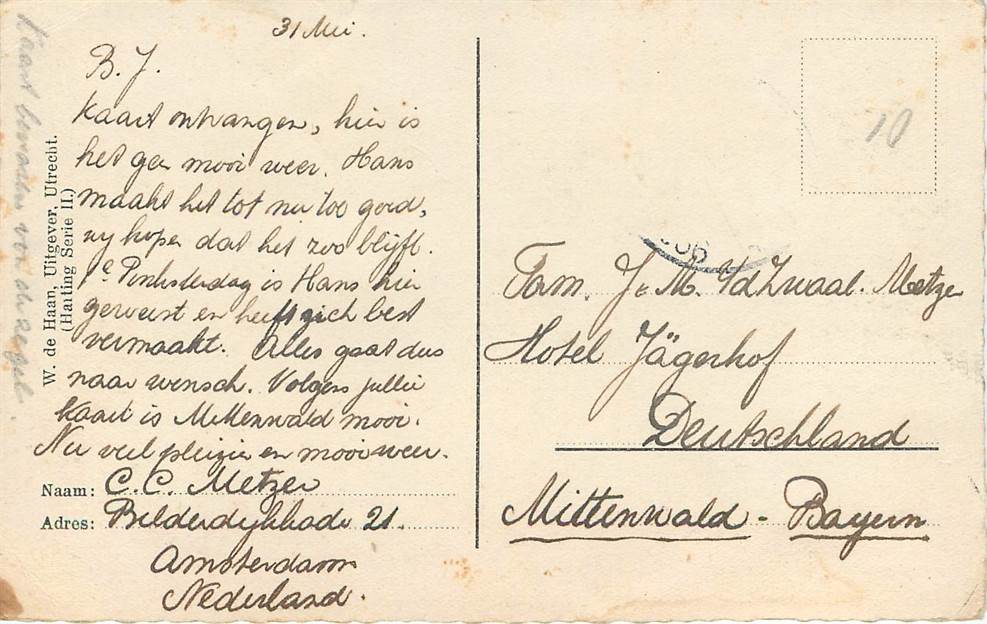 31 Mei.
B. J.
Kaart ontvangen, hier is
het geen mooi weer. Hans
maakt het tot nu too goed,
wy hopen dat het zoo blijft.
1e Pinksterdag is Hans hier
geweest en heeft zich best
vermaakt. Alles gaat dus
naar wensch. Volgens jullie
kaart is Mittenwald mooi.
Nu veel plezier en mooi weer.
Naam: C. C. Metzer
Adres: Bilderdijkkade 21.
Amsterdam
Nederland.
Kaart
W. de Haan, Uitgever, Utrecht.
(Harting Serie II.)
10
Fam. J. M. v/d Zwaal. Metzer
Hotel Jägerhof
Deutschland
Mittenwald - Bayern